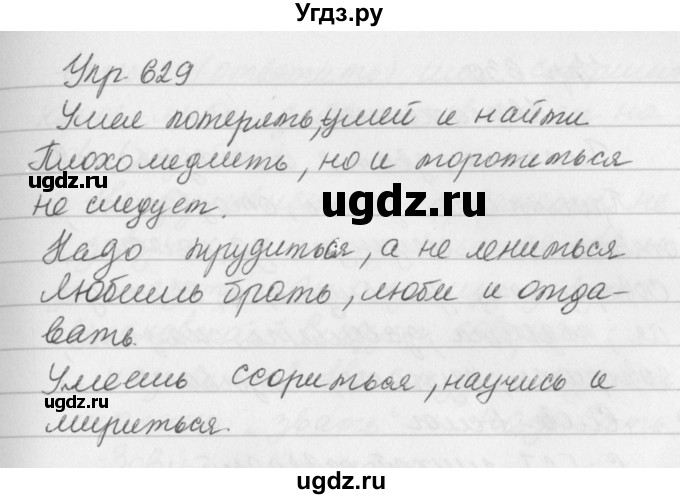 Угдз.ру
Упр 629
Умел потерять, умей и найти
Плохо медлить, но и торопиться
не следует.
Надо трудиться, а не лениться
Любишь брать, люби и отда-
вать.
Умеешь ссориться, научись и
мириться.
ugdz.ru
ugdz.ru
ugdz.ru
ugdz.ru
ugdz.ru